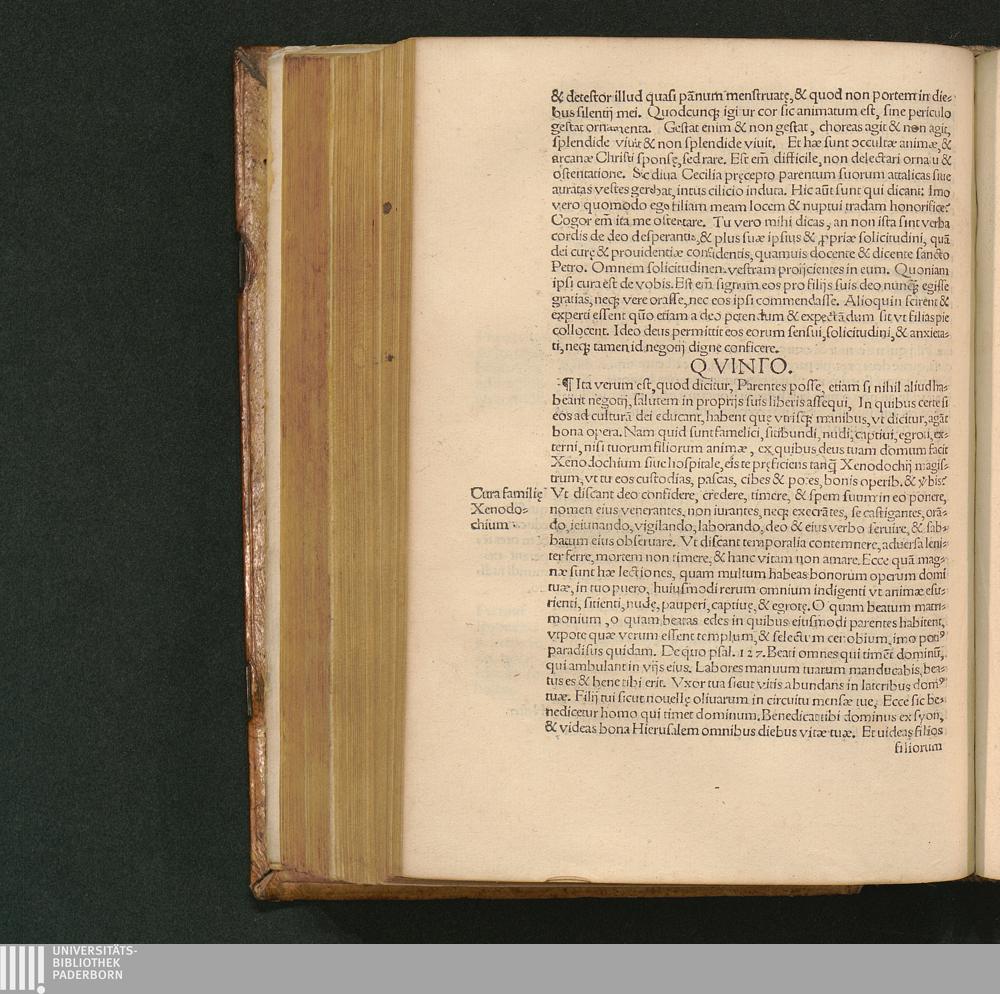 & detestor illud quasi pãnum menstruatę, & quod non portem in die-
bus silentij mei. Quodcunqꝫ igitur cor sic animatum est, sine periculo
gestat ornamenta. Gestat enim & non gestat, choreas agit & non agit,
splendide viuit & non splendide viuit. Et hæ sunt occultæ animæ, &
arcanæ Christi sponsę, sed rare. Est em̃ difficile, non delectari ornatu &
ostentatione. Sic diua Cecilia pręcepto parentum suorum attalicas siue
auratas vestes gerebat, intus cilicio induta. Hic aũt sunt qui dicant: Imo
vero quomodo ego filiam meam locem & nuptui tradam honorifice?
Cogor em̃ ita me ostentare. Tu vero mihi dicas, an non ista sint verba
cordis de deo desperantis, & plus suæ ipsius & ꝓpriæ solicitudini, quã
dei curę & prouidentiæ confidentis, quamuis docente & dicente sancto
Petro. Omnem solicitudinem vestram proijcientes in eum. Quoniam
ipsi cura est de vobis. Est em̃ signum eos pro filijs suis deo nunqꝫ̃ egisse
gratias, neqꝫ vere orasse, nec eos ipsi commendasse. Alioquin scirent &
experti essent quõ etiam a deo petendum & expectãdum sit vt filias pie
collocent. Ideo deus permittit eos eorum sensui, solicitudini, & anxieta-
ti, neqꝫ tamen id negotij digne conficere.
QVINTO.
¶ Ita verum est, quod dicitur, Parentes posse, etiam si nihil aliud ha-
beant negotij, salutem in proprijs suis liberis assequi, In quibus certe si
eos ad culturã dei educant, habent quę vtrisqꝫ manibus, vt dicitur, agãt
bona opera. Nam quid sunt famelici, sitibundi, nudi, captiui, egroti, ex-
terni, nisi tuorum filiorum animæ, ex quibus deus tuam domum facit
Xenodochium siue hospitale, eis te pręficiens tanqꝫ̃ Xenodochij magis-
trum, vt tu eos custodias, pascas, cibes & potes, bonis operib. & ỹbis?
Cura familię
Xenodo-
chium
Vt discant deo confidere, credere, timere, & spem suum in eo ponere,
nomen eius venerantes, non iurantes, neqꝫ execrãtes, se castigantes, orã-
do, ieiunando, vigilando, laborando, deo & eius verbo seruire, & sab-
batum eius obseruare. Vt discant temporalia contemnere, aduersa leni-
ter ferre, mortem non timere, & hanc vitam non amare. Ecce quã mag-
næ sunt hæ lectiones, quam multum habeas bonorum operum domi
tuæ, in tuo puero, huiusmodi rerum omnium indigenti vt animæ esu-
rienti, sitienti, nudę, pauperi, captiuę, & egrotę. O quam beatum matri-
monium, o quam beatas edes in quibus eiusmodi parentes habitent,
vtpote quæ verum essent templum, & selectum cenobium, imo potiꝰ
paradisus quidam. De quo psal. 127. Beati omnes qui timẽt dominũ,
qui ambulant in vijs eius. Labores manuum tuarum manducabis, bea-
tus es & bene tibi erit. Vxor tua sicut vitis abundans in lateribus domꝰ
tuæ. Filij tui sicut nouellę oliuarum in circuitu mensæ tue, Ecce sic be-
nedicetur homo qui timet dominum. Benedicat tibi dominus ex syon,
& videas bona Hierusalem omnibus diebus vitæ tuæ. Et uideas filios
filiorum
UNIVERSITÄTS-
BIBLIOTHEK
PADERBORN